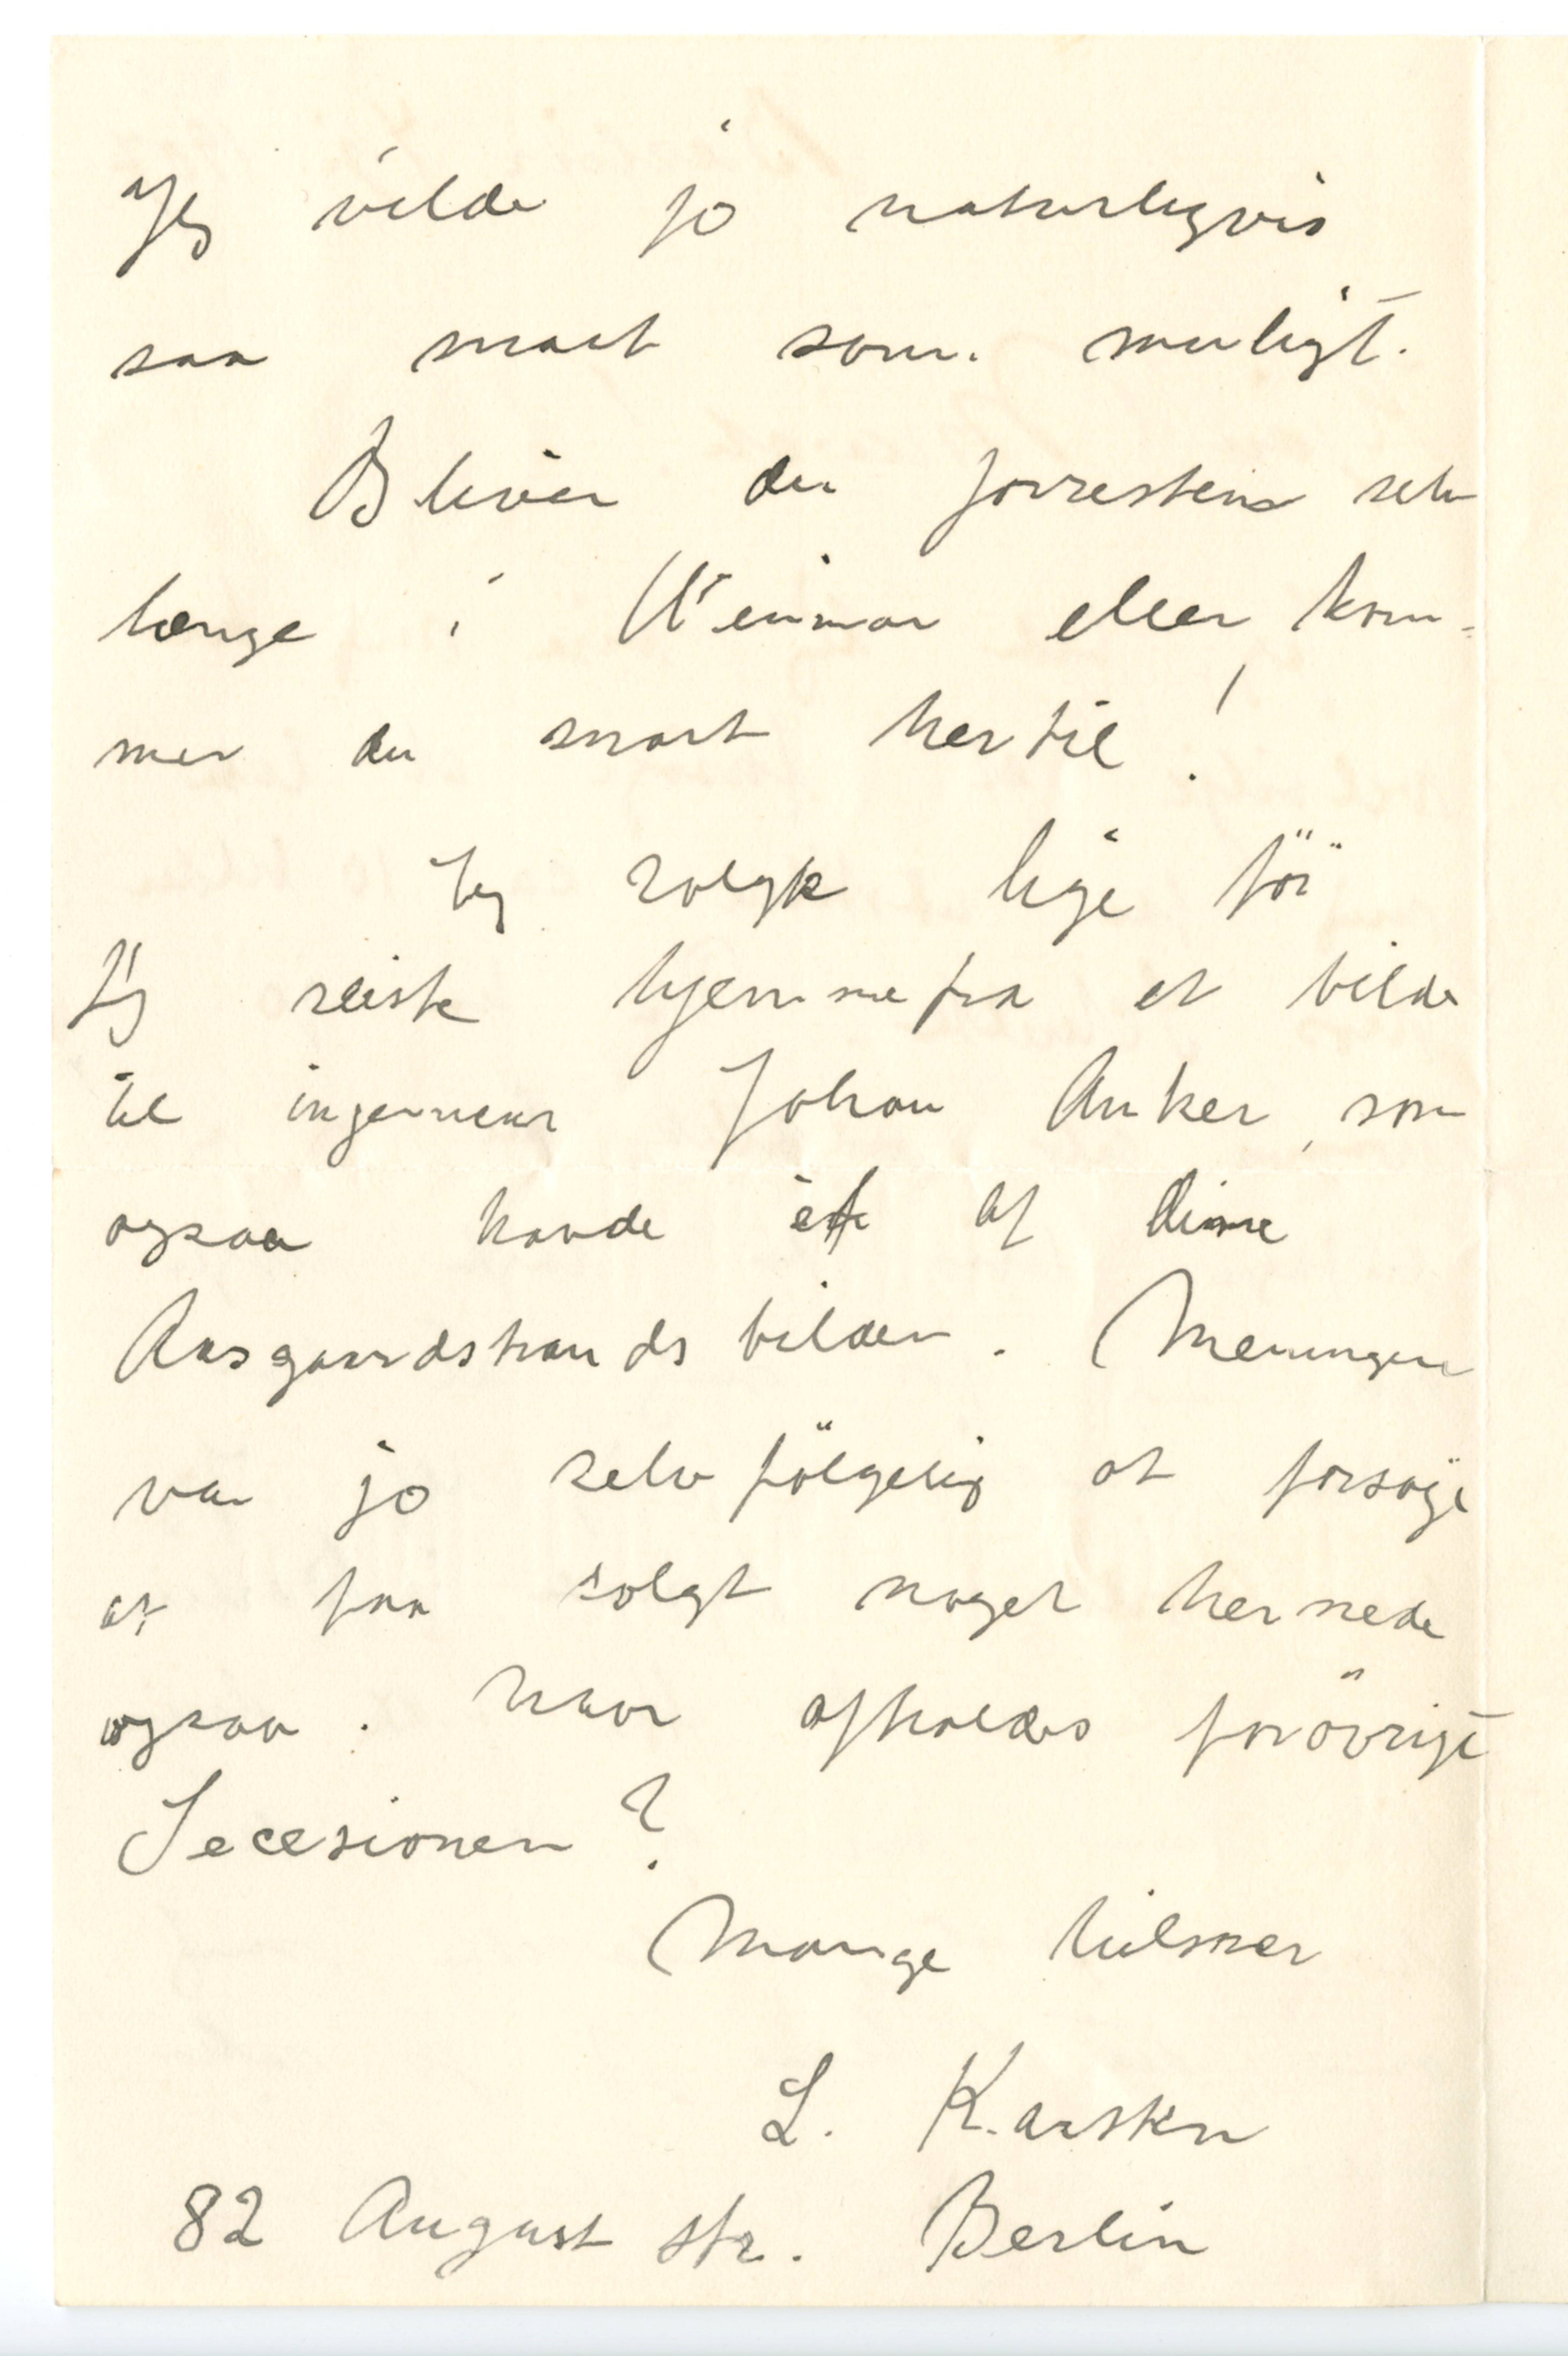 Jeg vilde jo naturligvis
saa snart som muligt.
Bliver du forrestens selv
længe i Weimar eller kom-
mer du snart hertil!
Jeg solgte lige för
jeg reiste hjemmefra et bilde
til ingenieur Johan Anker, som
ogsaa havde et af dine
Aasgaardstrands bilder. Meningen
var jo selvfölgelig at forsöge
at faa solgt noget hernede
ogsaa. Naar afholdes forövrigt
Secesionen?
Mange hilsner
L. Karsten
82 August str. Berlin